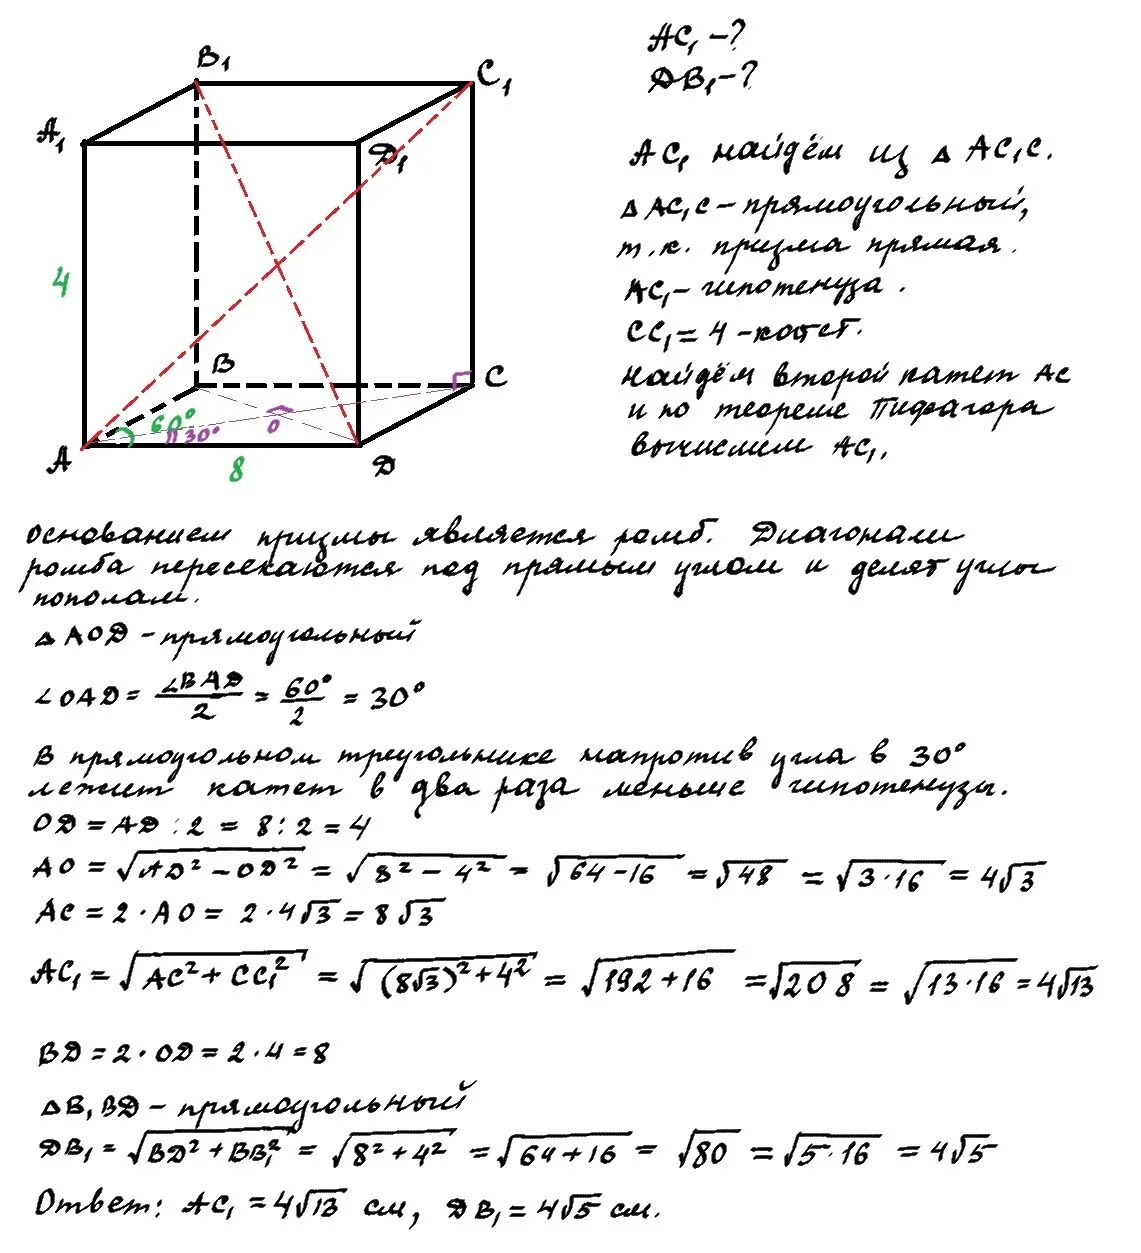 B₁
C₁
AC₁ - ?
DB₁ - ?
A₁
D₁
AC₁ найдём из △ AC₁C.
△ AC₁C – прямоугольный,
т.к. призма прямая.
4
AC₁ – гипотенуза.
CC₁ = 4 – катет.
B
C
найдём второй катет AC
и по теореме Пифагора
вычислим AC₁.
60°
30°
O
A
8
D
Основанием призмы является ромб. Диагонали
ромба пересекаются под прямым углом и делят углы
пополам.
△ AOD – прямоугольный
∠OAD = ∠BAD/2 = 60°/2 = 30°
В прямоугольном треугольнике напротив угла в 30°
лежит катет в два раза меньше гипотенузы.
OD = AD : 2 = 8 : 2 = 4
AO = √(AD² – OD²) = √(8² – 4²) = √(64 – 16) = √48 = √(3·16) = 4√3
AC = 2 · AO = 2 · 4√3 = 8√3
AC₁ = √(AC² + CC₁²) = √((8√3)² + 4²) = √(192 + 16) = √208 = √(13·16) = 4√13
BD = 2 · OD = 2 · 4 = 8
△B₁BD – прямоугольный
DB₁ = √(BD² + BB₁²) = √(8² + 4²) = √(64 + 16) = √80 = √(5·16) = 4√5
Ответ: AC₁ = 4√13 см, DB₁ = 4√5 см.